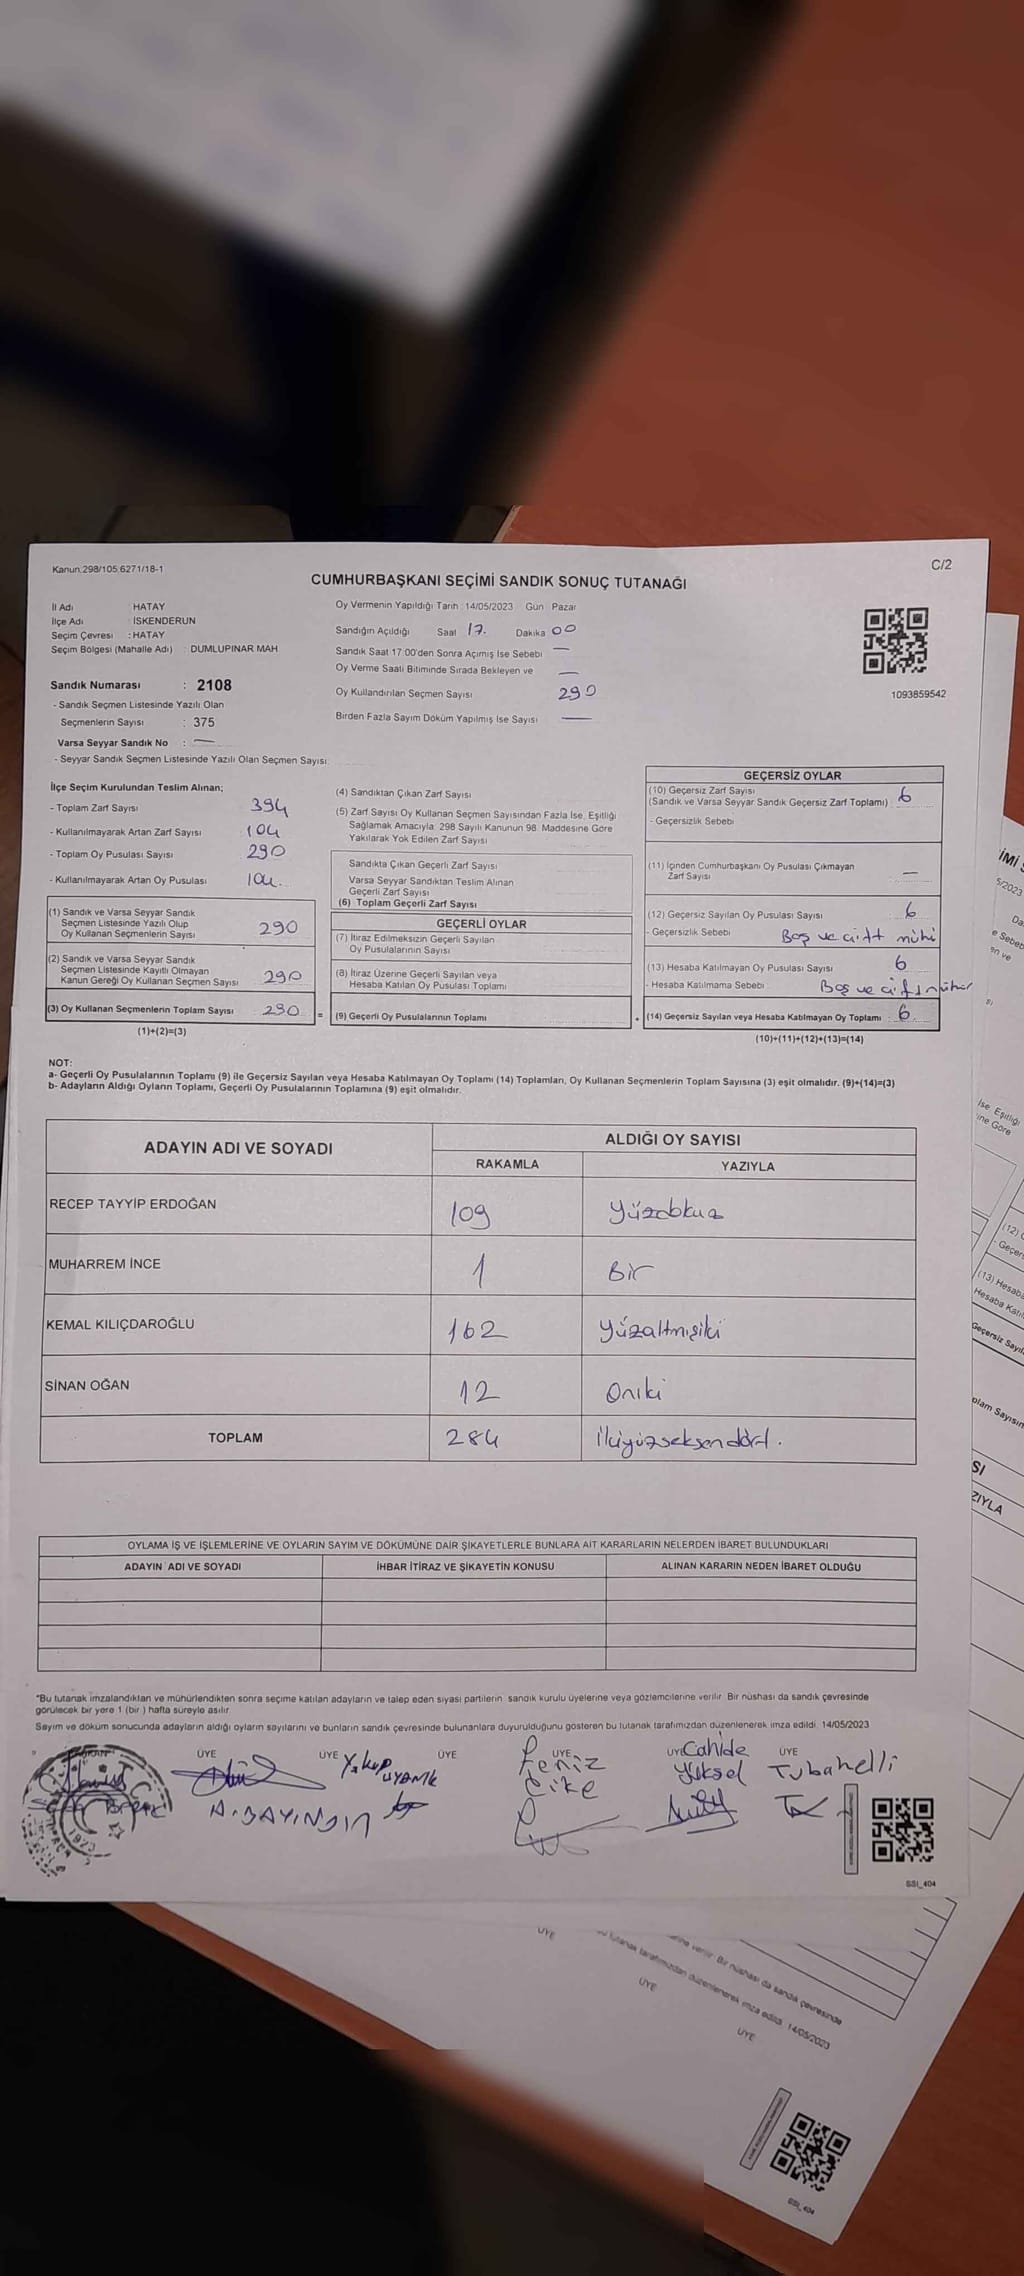 Kanun:298/105;6271/18-1
C/2
CUMHURBAŞKANI SEÇİMİ SANDIK SONUÇ TUTANAĞI
İl Adı HATAY
İlçe Adı : İSKENDERUN
Seçim Çevresi : HATAY
Seçim Bölgesi (Mahalle Adı) : DUMLUPINAR MAH
Sandık Numarası : 2108
- Sandık Seçmen Listesinde Yazılı Olan
Seçmenlerin Sayısı : 375
Varsa Seyyar Sandık No : —
- Seyyar Sandık Seçmen Listesinde Yazılı Olan Seçmen Sayısı:
Oy Vermenin Yapıldığı Tarih : 14/05/2023 Gün Pazar
Sandığın Açıldığı Saat 17. Dakika 00
Sandık Saat 17:00'den Sonra Açımış İse Sebebi —
Oy Verme Saati Bitiminde Sırada Bekleyen ve —
Oy Kullandırılan Seçmen Sayısı 290
Birden Fazla Sayım Döküm Yapılmış İse Sayısı —
1093859542
İlçe Seçim Kurulundan Teslim Alınan;
- Toplam Zarf Sayısı 394
- Kullanılmayarak Artan Zarf Sayısı 104
- Toplam Oy Pusulası Sayısı 290
- Kullanılmayarak Artan Oy Pusulası 104.
(1) Sandık ve Varsa Seyyar Sandık
Seçmen Listesinde Yazılı Olup
Oy Kullanan Seçmenlerin Sayısı 290
(2) Sandık ve Varsa Seyyar Sandık
Seçmen Listesinde Kayıtlı Olmayan
Kanun Gereği Oy Kullanan Seçmen Sayısı 290
(3) Oy Kullanan Seçmenlerin Toplam Sayısı 290 =
(1)+(2)=(3)
(4) Sandıktan Çıkan Zarf Sayısı
(5) Zarf Sayısı Oy Kullanan Seçmen Sayısından Fazla İse, Eşitliği
Sağlamak Amacıyla, 298 Sayılı Kanunun 98. Maddesine Göre
Yakılarak Yok Edilen Zarf Sayısı
Sandıkta Çıkan Geçerli Zarf Sayısı
Varsa Seyyar Sandıktan Teslim Alınan
Geçerli Zarf Sayısı
(6) Toplam Geçerli Zarf Sayısı
GEÇERLİ OYLAR
(7) İtiraz Edilmeksizin Geçerli Sayılan
Oy Pusulalarının Sayısı
(8) İtiraz Üzerine Geçerli Sayılan veya
Hesaba Katılan Oy Pusulası Toplamı
(9) Geçerli Oy Pusulalarının Toplamı +
GEÇERSİZ OYLAR
(10) Geçersiz Zarf Sayısı
(Sandık ve Varsa Seyyar Sandık Geçersiz Zarf Toplamı) 6
- Geçersizlik Sebebi
(11) İçinden Cumhurbaşkanı Oy Pusulası Çıkmayan
Zarf Sayısı —
(12) Geçersiz Sayılan Oy Pusulası Sayısı 6
- Geçersizlik Sebebi Boş ve çift mühü
(13) Hesaba Katılmayan Oy Pusulası Sayısı 6
- Hesaba Katılmama Sebebi Boş ve çift mühür
(14) Geçersiz Sayılan veya Hesaba Katılmayan Oy Toplamı 6
(10)+(11)+(12)+(13)=(14)
NOT:
a- Geçerli Oy Pusulalarının Toplamı (9) ile Geçersiz Sayılan veya Hesaba Katılmayan Oy Toplamı (14) Toplamları, Oy Kullanan Seçmenlerin Toplam Sayısına (3) eşit olmalıdır. (9)+(14)=(3)
b- Adayların Aldığı Oyların Toplamı, Geçerli Oy Pusulalarının Toplamına (9) eşit olmalıdır.
ADAYIN ADI VE SOYADI ALDIĞI OY SAYISI
RAKAMLA YAZIYLA
RECEP TAYYİP ERDOĞAN 109 Yüzdokuz
MUHARREM İNCE 1 Bir
KEMAL KILIÇDAROĞLU 162 Yüzaltmışiki
SİNAN OĞAN 12 Oniki
TOPLAM 284 İkiyüzseksendört.
OYLAMA İŞ VE İŞLEMLERİNE VE OYLARIN SAYIM VE DÖKÜMÜNE DAİR ŞİKAYETLERLE BUNLARA AİT KARARLARIN NELERDEN İBARET BULUNDUKLARI
ADAYIN ADI VE SOYADI İHBAR İTİRAZ VE ŞİKAYETİN KONUSU ALINAN KARARIN NEDEN İBARET OLDUĞU
"Bu tutanak imzalandıktan ve mühürlendikten sonra seçime katılan adayların ve talep eden siyasi partilerin sandık kurulu üyelerine veya gözlemcilerine verilir. Bir nüshası da sandık çevresinde
görülecek bir yere 1 (bir ) hafta süreyle asılır.
Sayım ve döküm sonucunda adayların aldığı oyların sayılarını ve bunların sandık çevresinde bulunanlara duyurulduğunu gösteren bu tutanak tarafımızdan düzenlenerek imza edildi. 14/05/2023
ÜYE ÜYE ÜYE ÜYE ÜYE ÜYE
Yakup UYANIK
A. BAYINDIR
Feniz
Çike
Cahide
Yüksel
Tubahelli
SSI_404
5/2023
(13) Hesaba
Hesaba Katıl
Geçersiz Sayıl
plam Sayısın
SI
ZIYLA
verilir. Bir nüshası da sandık çevresinde
tutanak tarafımızdan düzenlenerek imza edildi. 14/05/2023
ÜYE
ÜYE
ÜYE
SSI_404